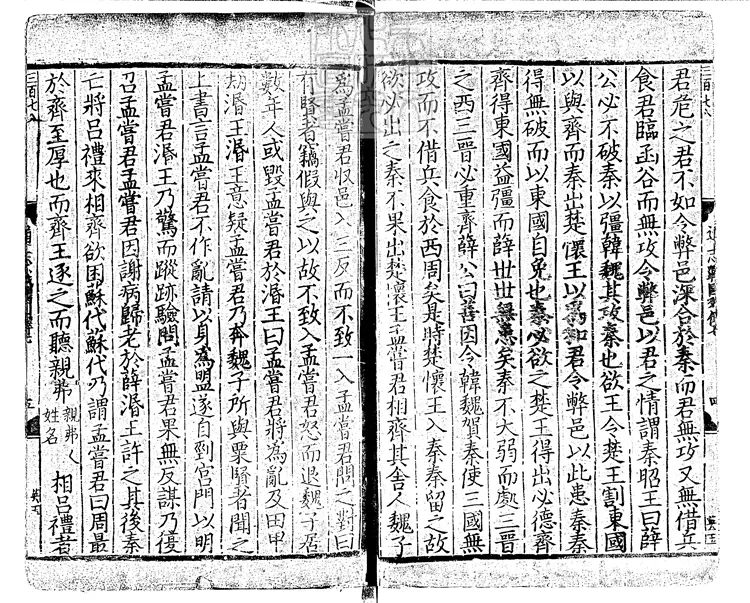 君危之君不如令弊邑深合於秦而君無攻又無借兵
食君臨函谷而無攻令弊邑以君之情謂秦昭王曰薛
公必不破秦以彊韓魏其攻秦也欲王令楚王割東國
以與齊而秦出楚懷王以為和君令弊邑以此惠秦秦
得無破而以東國自免也秦必欲之楚王得出必德齊
齊得東國益彊而薛世世無患矣秦不大弱而處三晉
之西三晉必重齊薛公曰善因令韓魏賀秦使三國無
攻而不借兵食於西周矣是時楚懷王入秦秦留之故
欲必出之秦不果出楚懷王孟嘗君相齊其舍人魏子
為孟嘗君收邑入三反而不致一入孟嘗君問之對曰
有賢者竊假與之以故不致入孟嘗君怒而退魏子居
數年人或毀孟嘗君於湣王曰孟嘗君將為亂及田甲
劫湣王湣王意疑孟嘗君乃奔魏子所與粟賢者聞之
上書言孟嘗君不作亂請以身為盟遂自剄宮門以明
孟嘗君湣王乃驚而蹤跡驗問孟嘗君果無反謀乃復
召孟嘗君孟嘗君因謝病歸老於薛湣王許之其後秦
亡將呂禮來相齊欲困蘇代蘇代乃謂孟嘗君曰周最
於齊至厚也而齊王逐之而聽親弗親弗人姓名相呂禮者